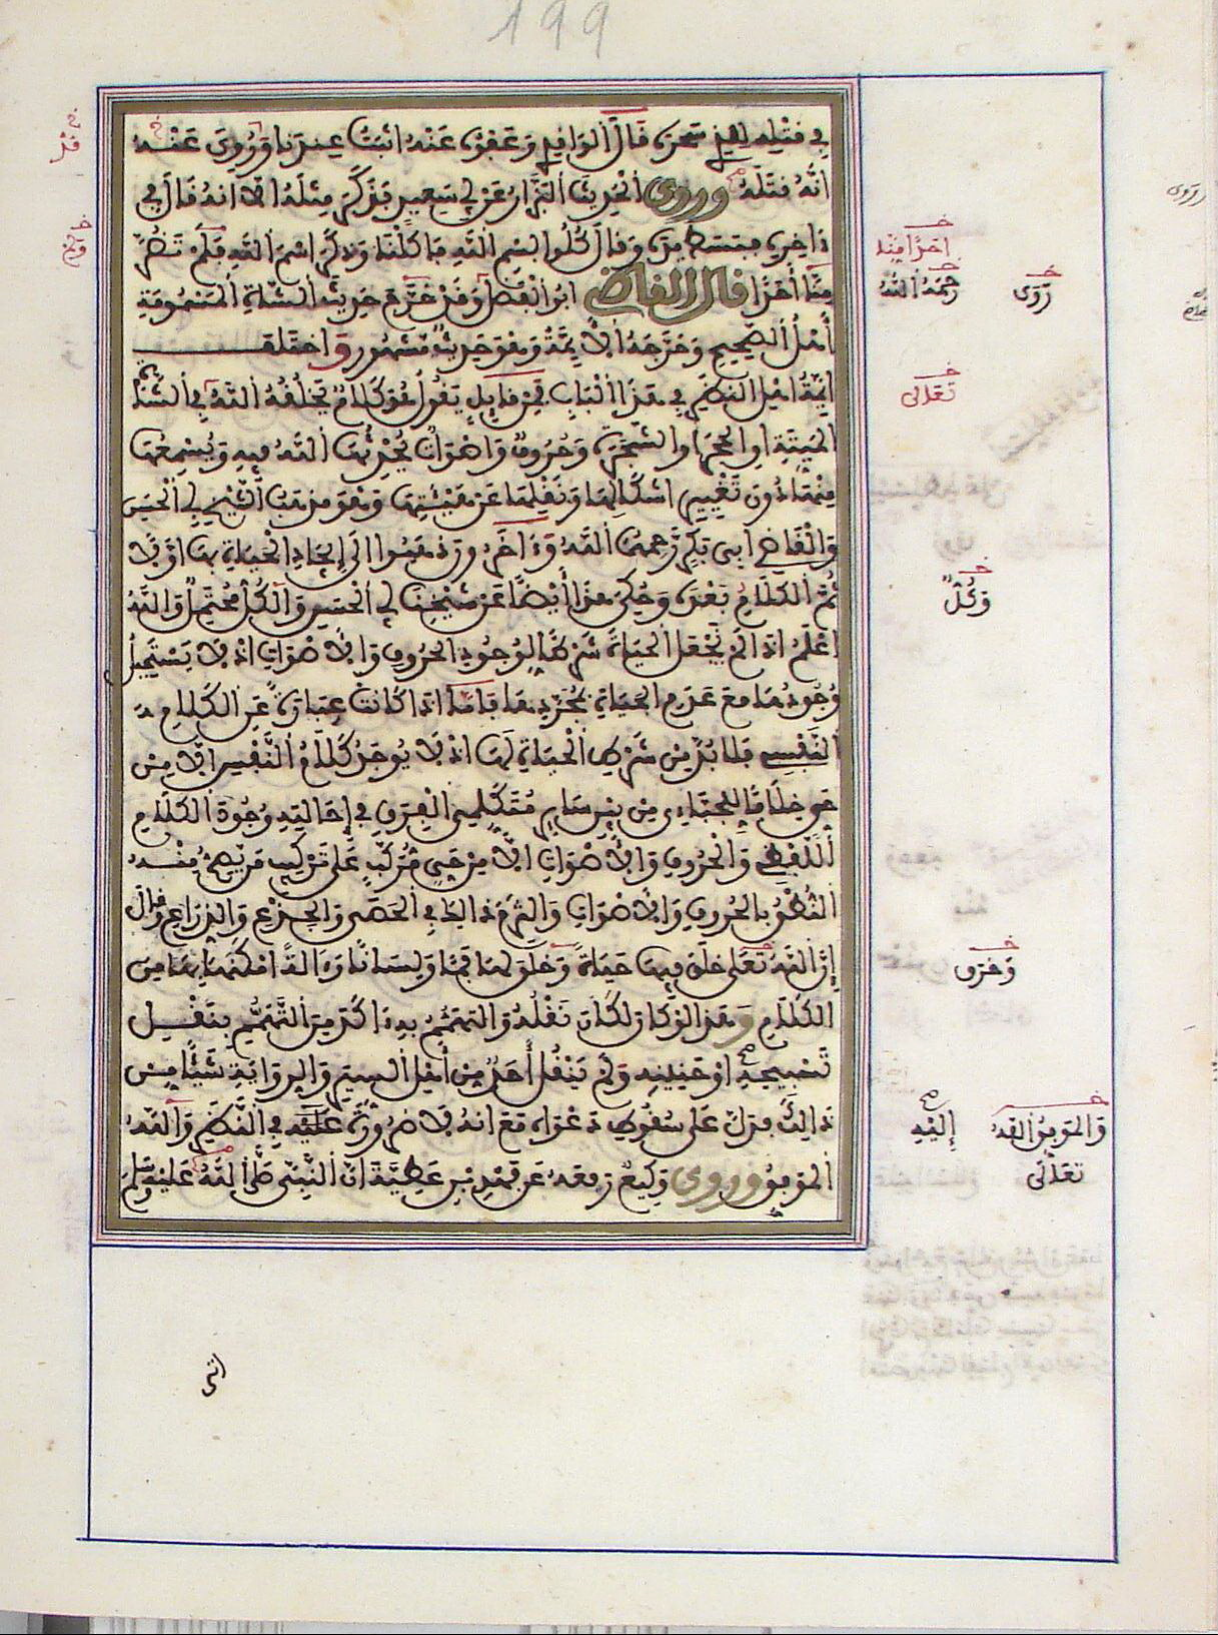 199
في قتله للذي سحره قال الواقدي وعفوه عنه أثبت عندنا وروي عنه
أنه قتله وروى الحديث البزار عن أبي سعيد فذكر مثله إلا أنه قال في
ءاخره فبسط يده وقال كلوا بسم الله فأكلنا وذكر اسم الله فلم تضر
منا أحدا قال القاضي أبو الفضل وقد خرج حديث الشاة المسمومة
أهل الصحيح وخرجه الأئمة وهو حديث مشهور واختلف
أئمة أهل النظر في هذا الباب فمن قائل يقول هو كلام يخلقه الله في الشاة
الميتة أو الحجر أو الشجر وحروف وأصوات يحدثها الله فيه ويسمعها
منها دون تغيير أشكالها ونقلها عن هيئتها وهو مذهب الشيخ أبي الحسن
والقاضي أبي بكر رحمهما الله وءاخرون ذهبوا إلى إيجاد الحياة بها أولا
ثم الكلام بعده وحكي هذا أيضا عن شيخنا أبي الحسن والكل محتمل والله
أعلم إذ لم نجعل الحياة شرطا لوجود الحروف والأصوات إذ لا يستحيل
وجودها مع عدم الحياة بمجردها فأما إذا كانت عبارة عن الكلام
النفسي فلا بد من شرط الحياة لها إذ لا يوجد كلام النفس إلا من
حي خلافا للجبائي من بين سائر متكلمي الفرق في إحالته وجود الكلام
اللفظي والحروف والأصوات إلا من حي مركب على تركيب من يصح منه
النطق بالحروف والأصوات والتزم ذلك في الحصى والجذع والذراع وقال
إن الله تعالى خلق فيها حياة وخلق لها فما ولسانا وءالة أمكنها بها من
الكلام وهذا لو كان لكان نقله والتهمم به ءاكد من التهمم بنقل
تسبيحه أو حنينه ولم ينقل أحد من أهل السير والرواية شيئا من
ذلك فدل على سقوط دعواه مع أنه لا ضرورة عليه في النظر والله
الموفق وروى وكيع رفعه عن فهد بن عطية أن النبي صلى الله عليه وسلم
أحدا منا
رحمه الله
روى
تعالى
وكل
وخرق
والموفق الله
تعالى
إليه
أتي